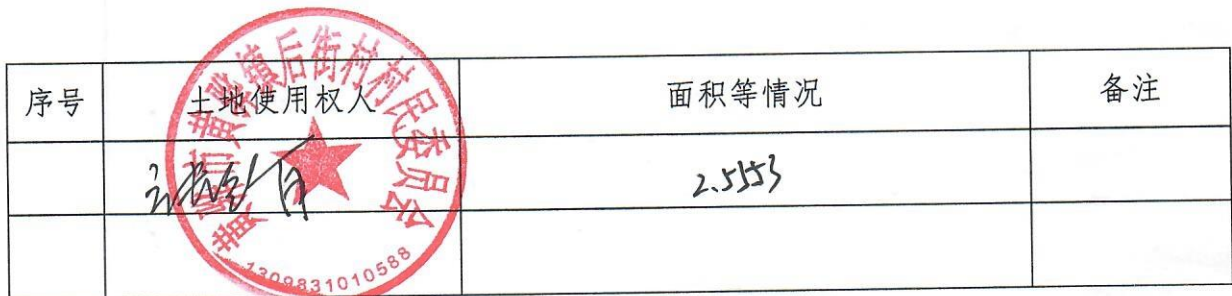 序号 土地使用权人 面积等情况 备注
2.5553
黄骅市黄骅镇后街村村民委员会
1309831010588